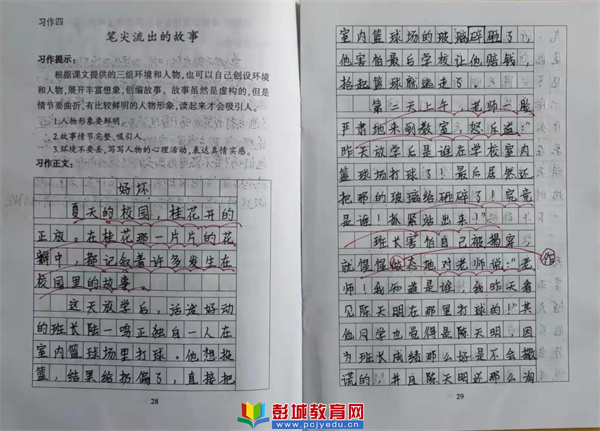 习作四
笔尖流出的故事
习作提示:
根据课文提供的三组环境和人物,也可以自己创设环境
和人物,展开丰富想象,创编故事。故事虽然是虚构的,但是
情节要曲折,有比较鲜明的人物形象,读起来才会吸引人。
1.人物形象要鲜明。
2.故事情节完整、吸引人。
3.环境不要丢,写写人物的心理活动,表达真情实感。
习作正文:
好坏
夏天的校园,桂花开的
正放。在桂花那一片片的花
瓣中,都记叙着许多发生在
校园里的故事。
这天放学后,活泼好动
的班长陆一鸣正独自一人在
室内篮球场里打球。他想投
篮,结果给扔偏了,直接把
28
室内篮球场的玻璃砸碎了
他害怕最后学校让他赔钱
捡起篮球就逃走了。
第二天上午,老师一脸
严肃地来到教室,怒斥道:"
昨天放学后是谁在学校室内
篮球场打球了!最后居然还
把那的玻璃给砸碎了!究竟
是谁!赶紧站出来!"
班长害怕自己被揭穿
就惺惺做态地对老师说:"老 作
师!我知道是谁,我昨天看
见陈天明在那里打球的!"其
他同学也觉得是陈天明,因
为班长成绩那么好是不会撒
谎的,并且陈天明还那么淘
29
彭城教育网
www.pcjyedu.cn